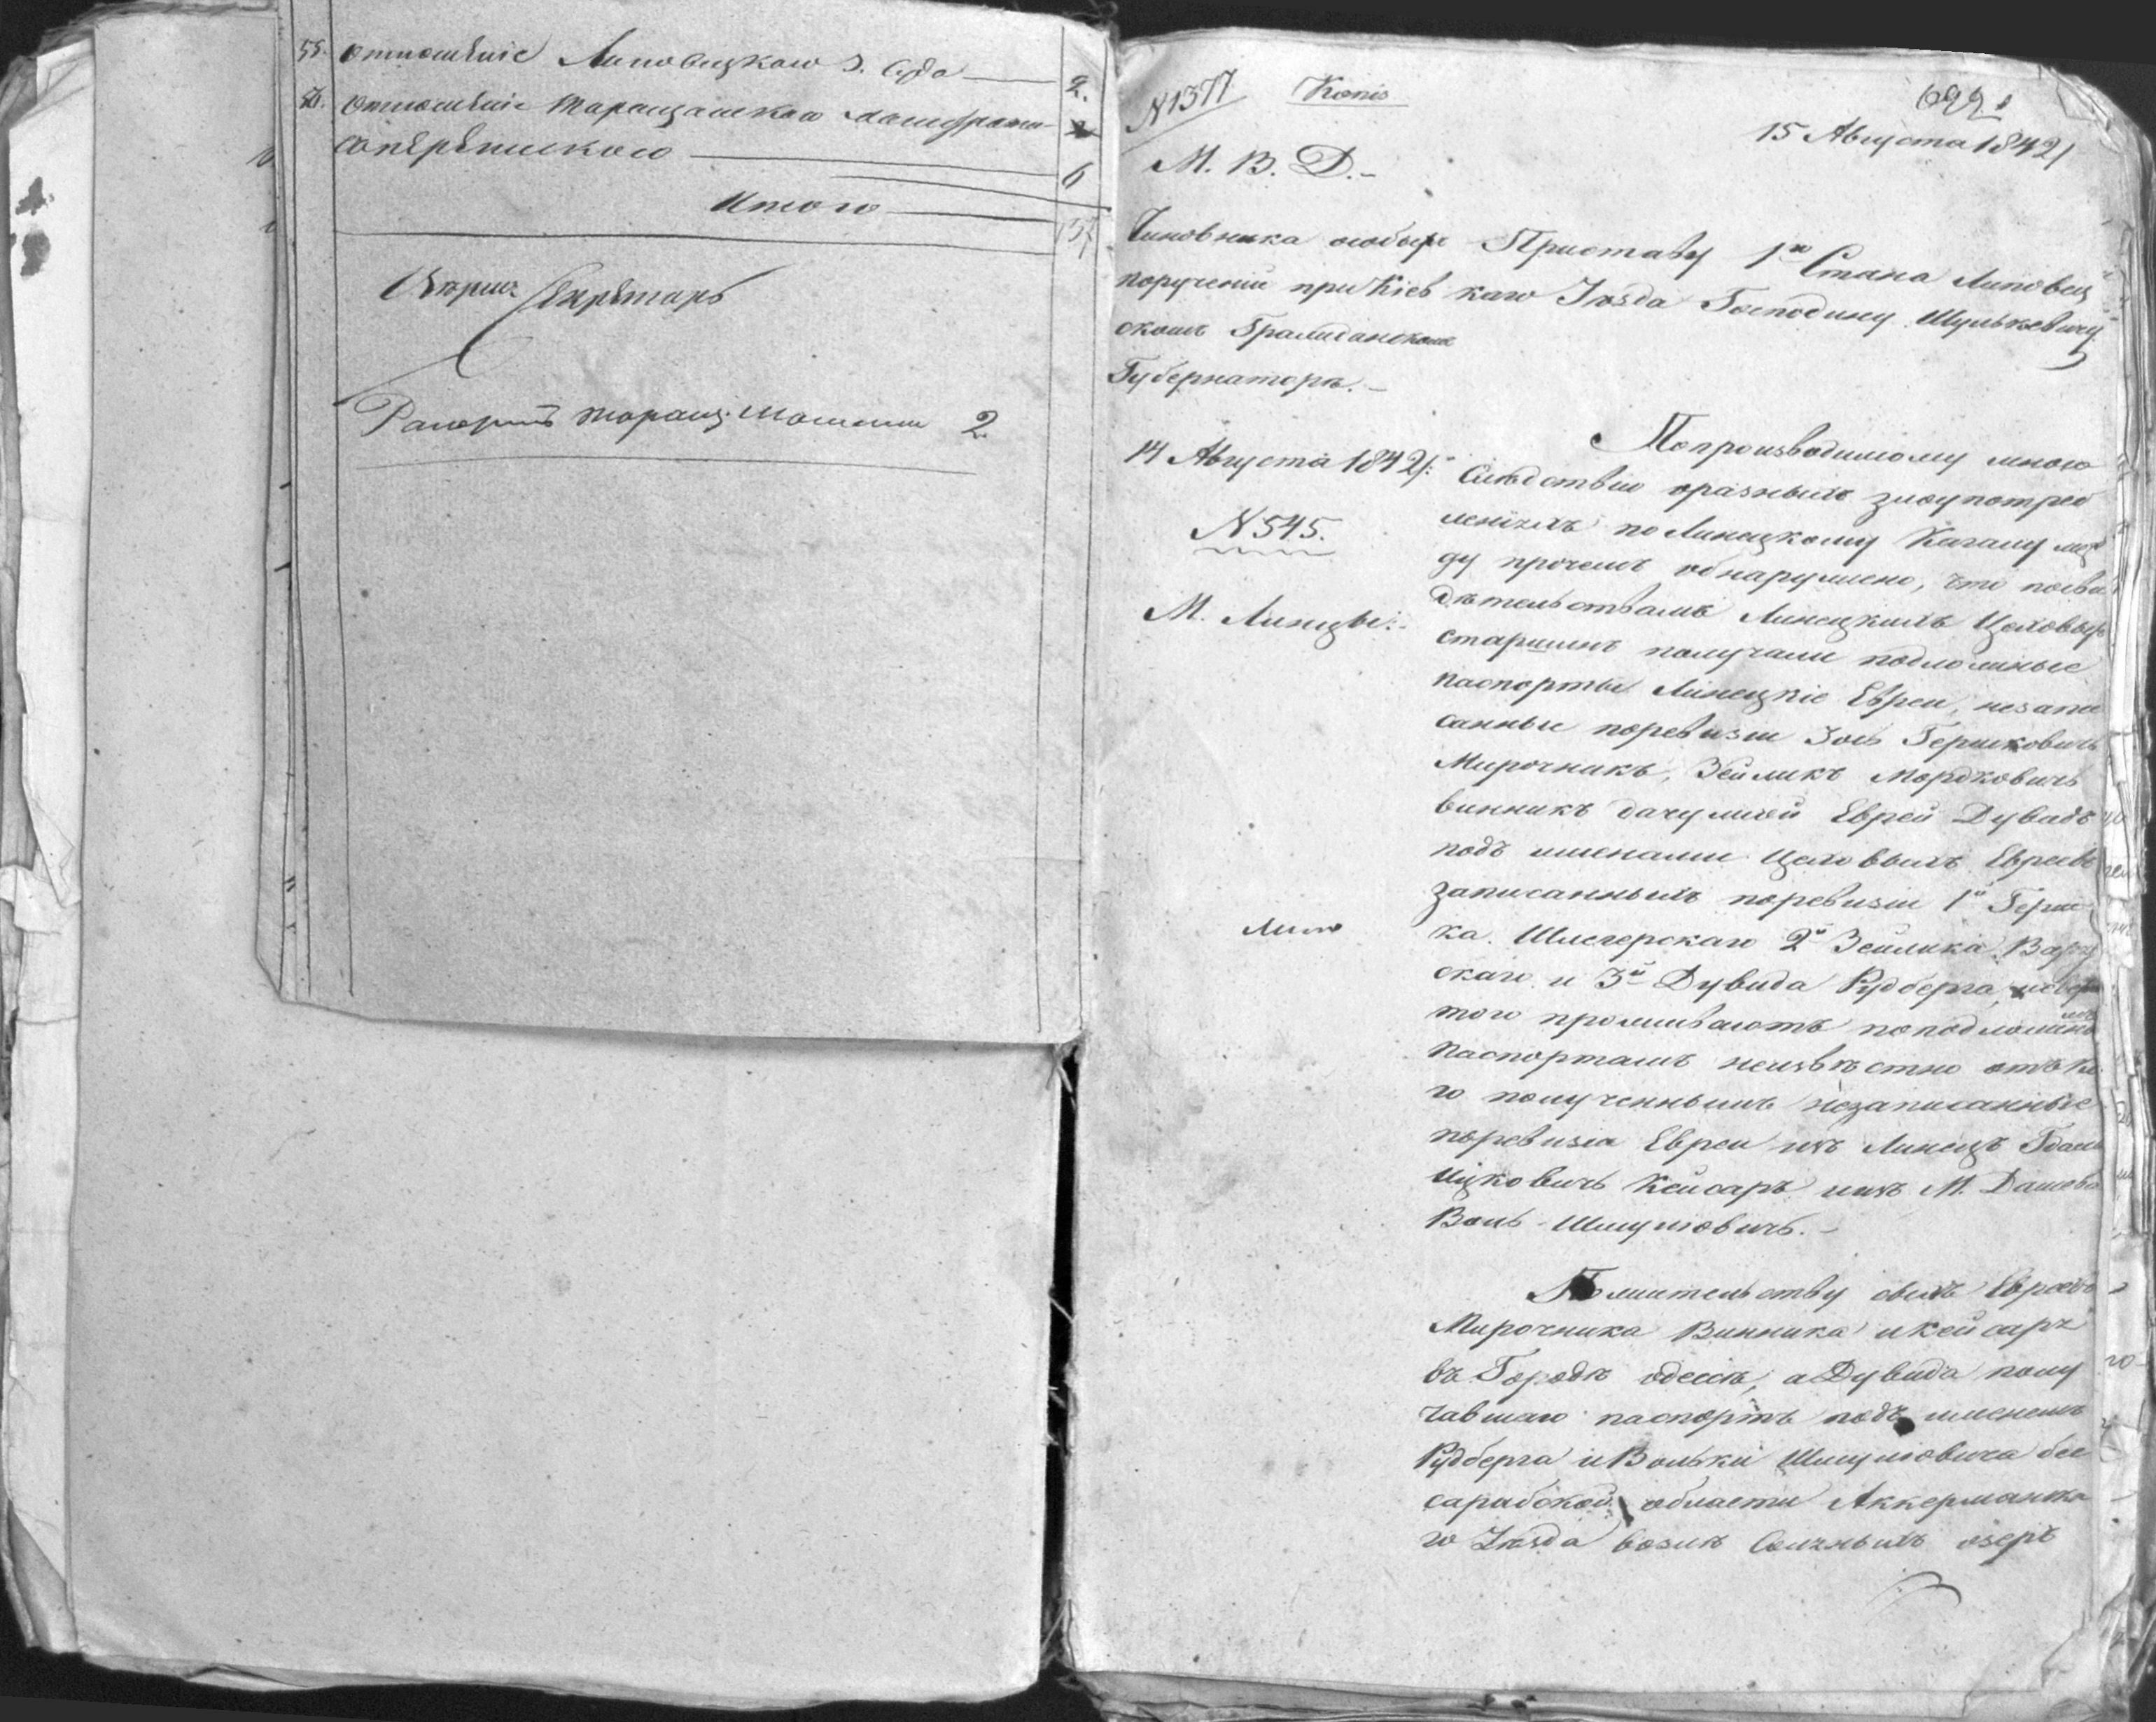 55. отношеніе Липовецкаго З. Суда 2.
56. отношеніе Таращанскаго
6
Итого 57
Секретарь
Рапортъ Таращ. 2.
N 1377 Копія
15 Августа 1842/
М. В. Д.
Чиновника особыхъ
порученій при Кіев
скомъ Гражданскомъ
Губернаторѣ.
14 Августа 1842/:
N 545.
М. Линцы:
Приставу 1го Стана Липовец
каго Уѣзда Господину Шулькевичу
Попроизводимому мною
Слѣдствію оразныхъ злоупотреб
леніяхъ по Линецкому Кагалу меж
ду прочемъ обнаружено, что посви
дѣтельствамъ Линецкихъ Цеховыхъ
старшинъ получали подложные
паспорты Линецкіе Евреи, незапи
санные поревизіи Зось Гершковичь
Мирочникъ, Зейликъ Мордковичь
винникъ Еврей Дувидъ
подъ именами Цеховыхъ Евреевъ
записанныхъ поревизіи 1й Герш
ка 2й Зейлика
скаго и 3й Дувида Рудберга, исверхъ
того проживаютъ поподложнымъ
паспортамъ неизвѣстно отъ ко
го полученнымъ незаписанные
поревизіи Евреи изъ Линецъ
Ицковичь Кейсаръ изъ М. Дашева
Воль Шмулювичь.
Пожительству свихъ Евреевъ
Мирочника Винника икейсаръ
въ Городѣ одессѣ, аДувида полу
чавшаго паспортъ подъ именемъ
Рудберга иВольки Шмулювича бес
сарабской области Аккерманска
го Уѣзда возлѣ Солчныхъ озеръ